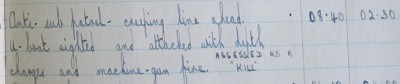 Anti-sub patrol - creeping line ahead. · 08·40 02·30
U-boat sighted and attacked with depth
charges and machine-gun fire. ASSESSED AS A
"KILL"